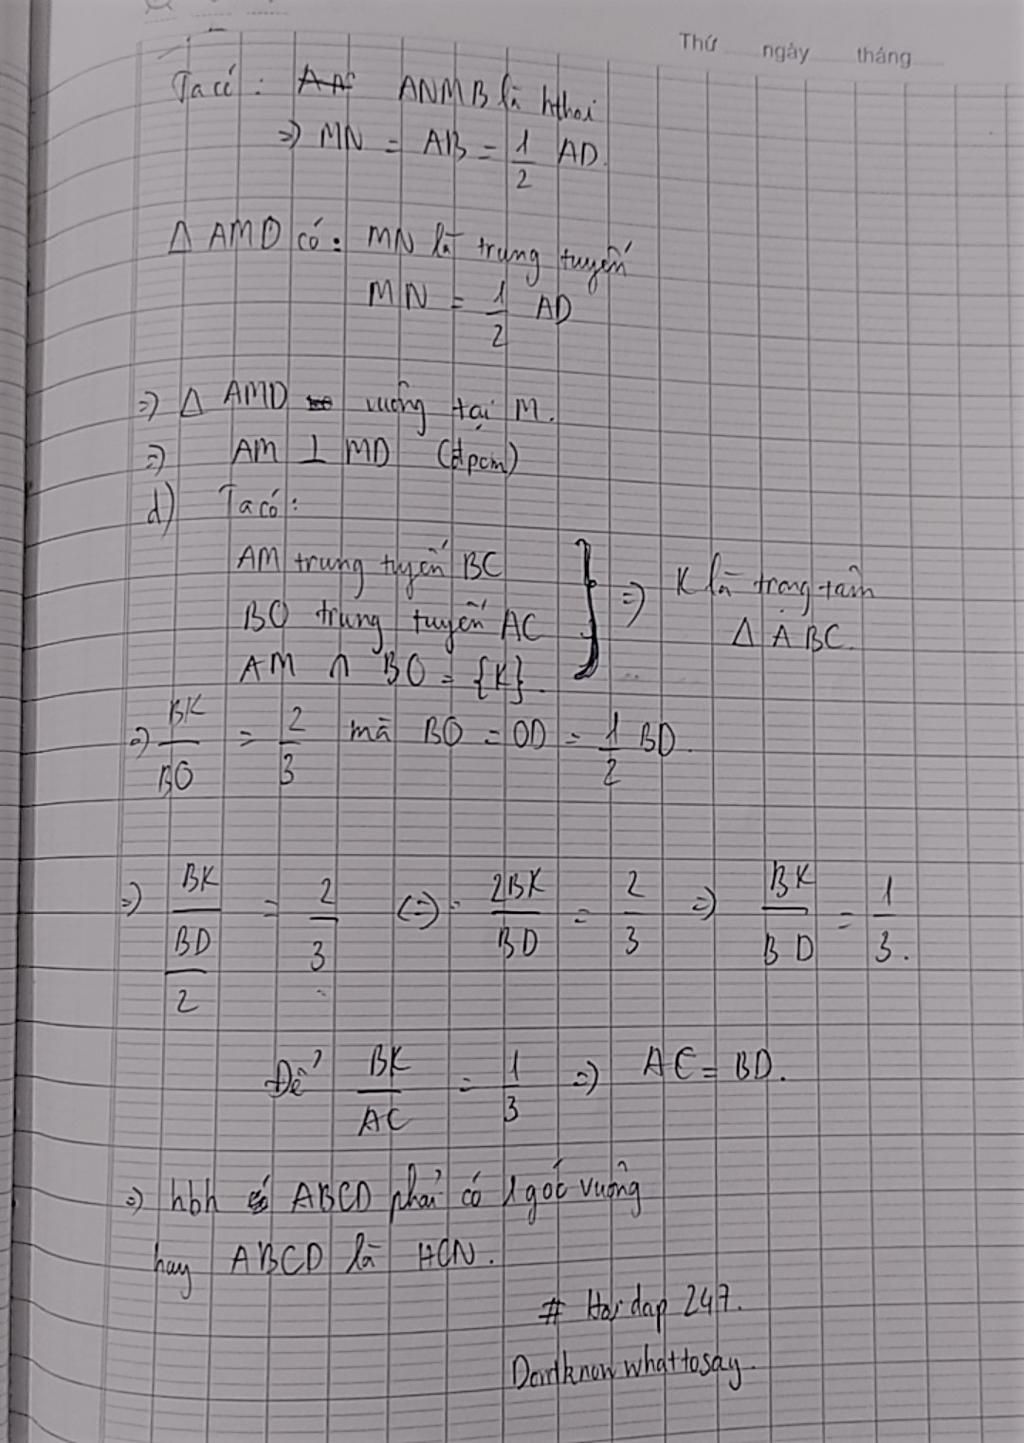 Thứ ngày tháng
Ta có : ANMB là hthoi
=> MN = AB = 1/2 AD.
Δ AMD có : MN là trung tuyến
MN = 1/2 AD
=> Δ AMD vuông tại M.
=> AM ⊥ MD (đpcm)
d) Ta có :
AM trung tuyến BC
BO trung tuyến AC
AM ∩ BO = {K}.
} => K là trọng tâm
Δ ABC.
=> BK/BO = 2/3 mà BO = OD = 1/2 BD.
=> BK/(BD/2) = 2/3 <=> 2BK/BD = 2/3 => BK/BD = 1/3.
Để BK/AC = 1/3 => AC = BD.
=> hbh ABCD phải có 1 góc vuông
hay ABCD là HCN.
# Hoidap 247.
Dontknowwhattosay.